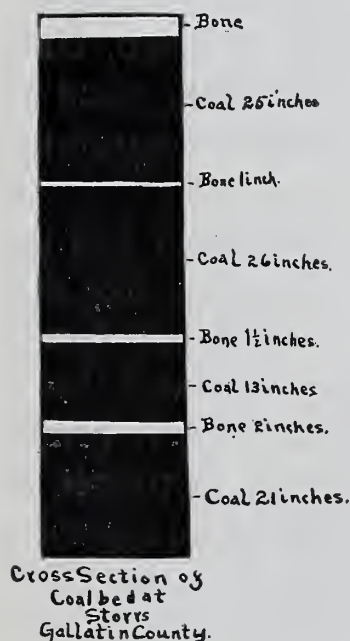 Bone
Coal 25 inches
Bone 1 inch.
Coal 26 inches.
Bone 1½ inches.
Coal 13 inches
Bone 2 inches.
Coal 21 inches.
Cross Section of
Coal bed at
Storrs
Gallatin County.